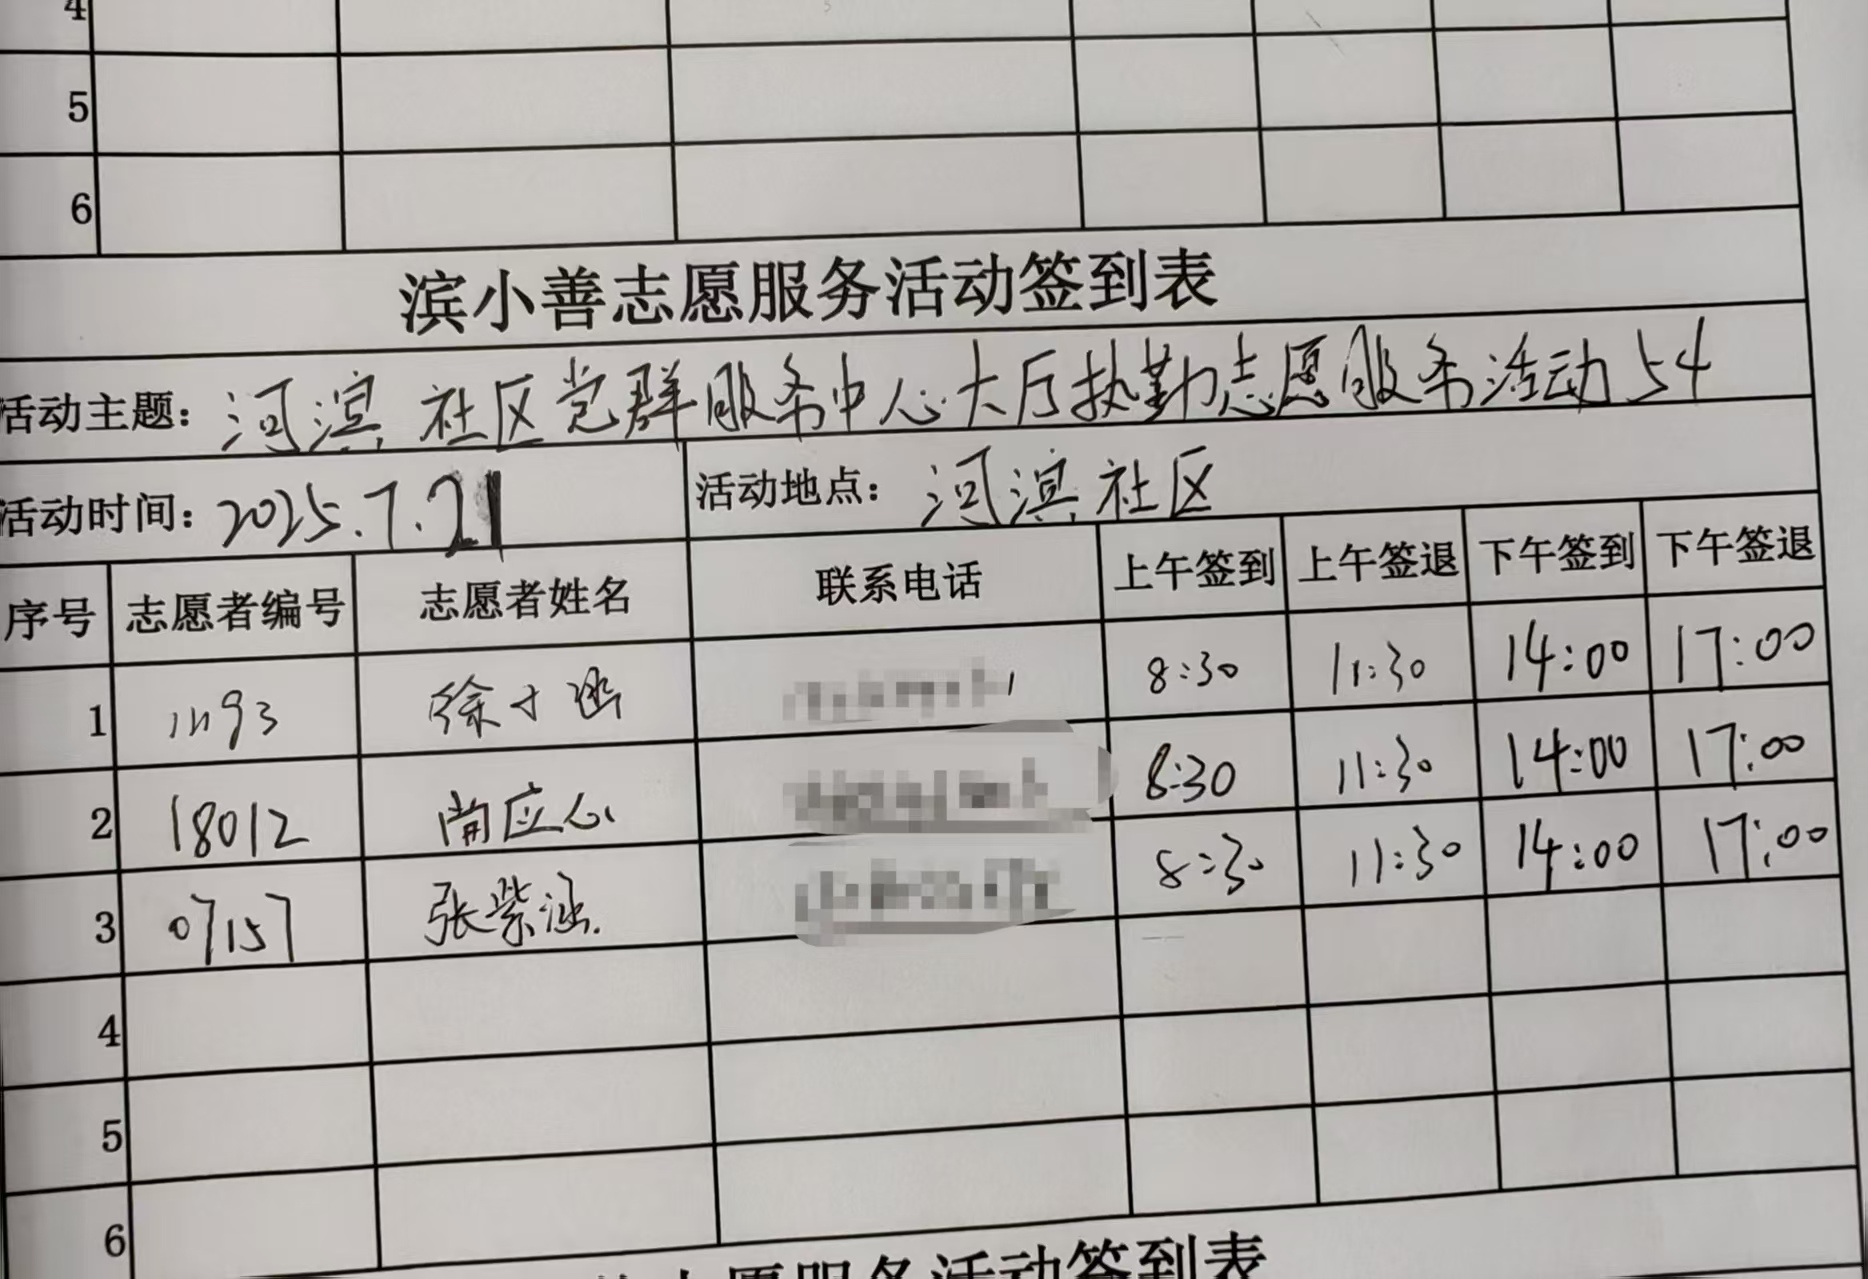 4
5
6
滨小善志愿服务活动签到表
活动主题：河滨社区党群服务中心大厅执勤志愿服务活动54
活动时间：2025.7.21 活动地点：河滨社区
序号 志愿者编号 志愿者姓名 联系电话 上午签到 上午签退 下午签到 下午签退
1 徐 8:30 11:30 14:00 17:00
2 18012 尚应心 8:30 11:30 14:00 17:00
3 07157 张紫涵 8:30 11:30 14:00 17:00
4
5
6
志愿服务活动签到表